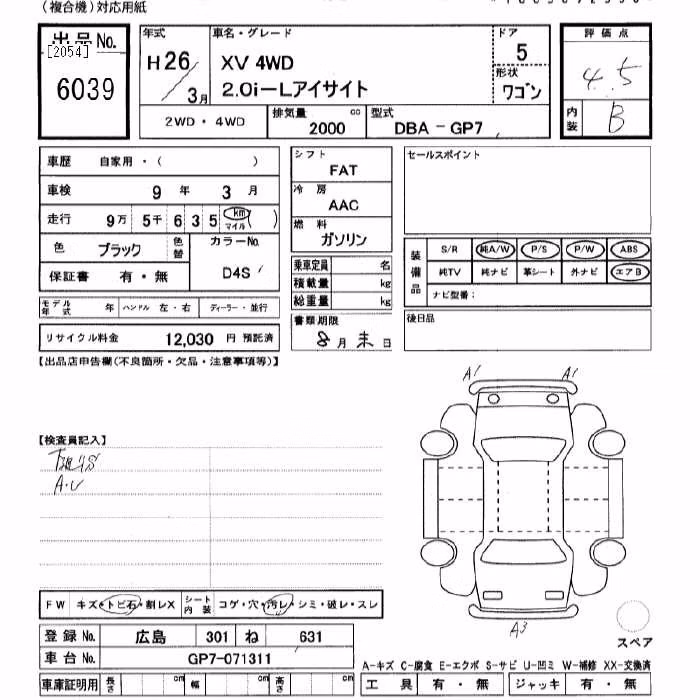 (複合機)対応用紙
出品No.
[2054]
6039
年式
H26/3月
車名・グレード
XV 4WD
2.0i−Lアイサイト
ドア
5
形状
ワゴン
評価点
4.5
内装
B
2WD・4WD
排気量
2000
cc
型式
DBA−GP7
車歴 自家用・( )
車検 9年 3月
走行 9万 5千 6 3 5 (km マイル)
色 ブラック 色替
カラーNo.
D4S
保証書 有・無
モデル年式 年 ハンドル 左・右 ディーラー・並行
リサイクル料金 12,030 円 預託済
シフト
FAT
冷房
AAC
燃料
ガソリン
乗車定員 名
積載量 kg
総重量 kg
書類期限
8月末日
セールスポイント
装備品
S/R 純A/W P/S P/W ABS
純TV 純ナビ 革シート 外ナビ エアB
ナビ型番:
後日品
【出品店申告欄(不良箇所・欠品・注意事項等)】
A1 A1
【検査員記入】
A・U
A3
FW キズ・トビ石・割レX
シート内装 コゲ・穴・汚レ・シミ・破レ・スレ
登録No. 広島 301 ね 631
車台No. GP7-071311
車庫証明用 長さ cm 幅 cm 高さ cm
スペア
A-キズ C-腐食 E-エクボ S-サビ U-凹ミ W-補修 XX-交換済
工具 有・無 ジャッキ 有・無